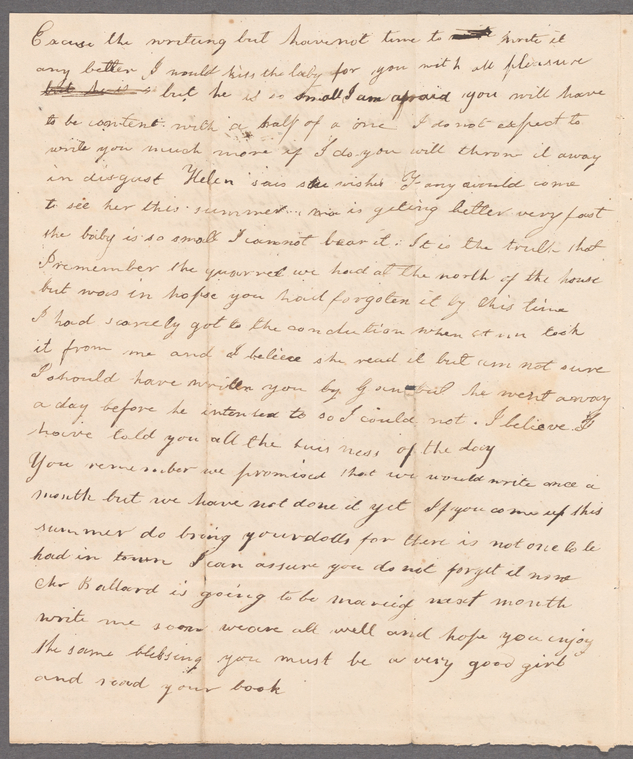 Excuse the writing but have not time to write it
any better I would kiss the baby for you with all pleasure
but he is so but he is so small I am afraid you will have
to be content with a half of a one I do not expect to
write you much more if I do you will throw it away
in disgust Helen sais she wishes Fany would come
to see her this summer is geting better very fast
the baby is so small I cannot bear it. It is the truth that
I remember the quarrel we had at the north of the house
but was in hopse you had forgoten it by this time
I had scarcely got to the conclution when took
it from me and I believe she read it but am not sure
I should have written you by but he went away
a day before he intended to so I could not. I believe I
have told you all the buisness of the day
You remember we promised that we would write once a
month but we have not done it yet If you come up this
summer do bring your dolls for there is not one to be
had in town I can assure you do not forget it now
Mr Ballard is going to be maried next month
write me soon we are all well and hope you enjoy
the same blessing you must be a very good girl
and read your book